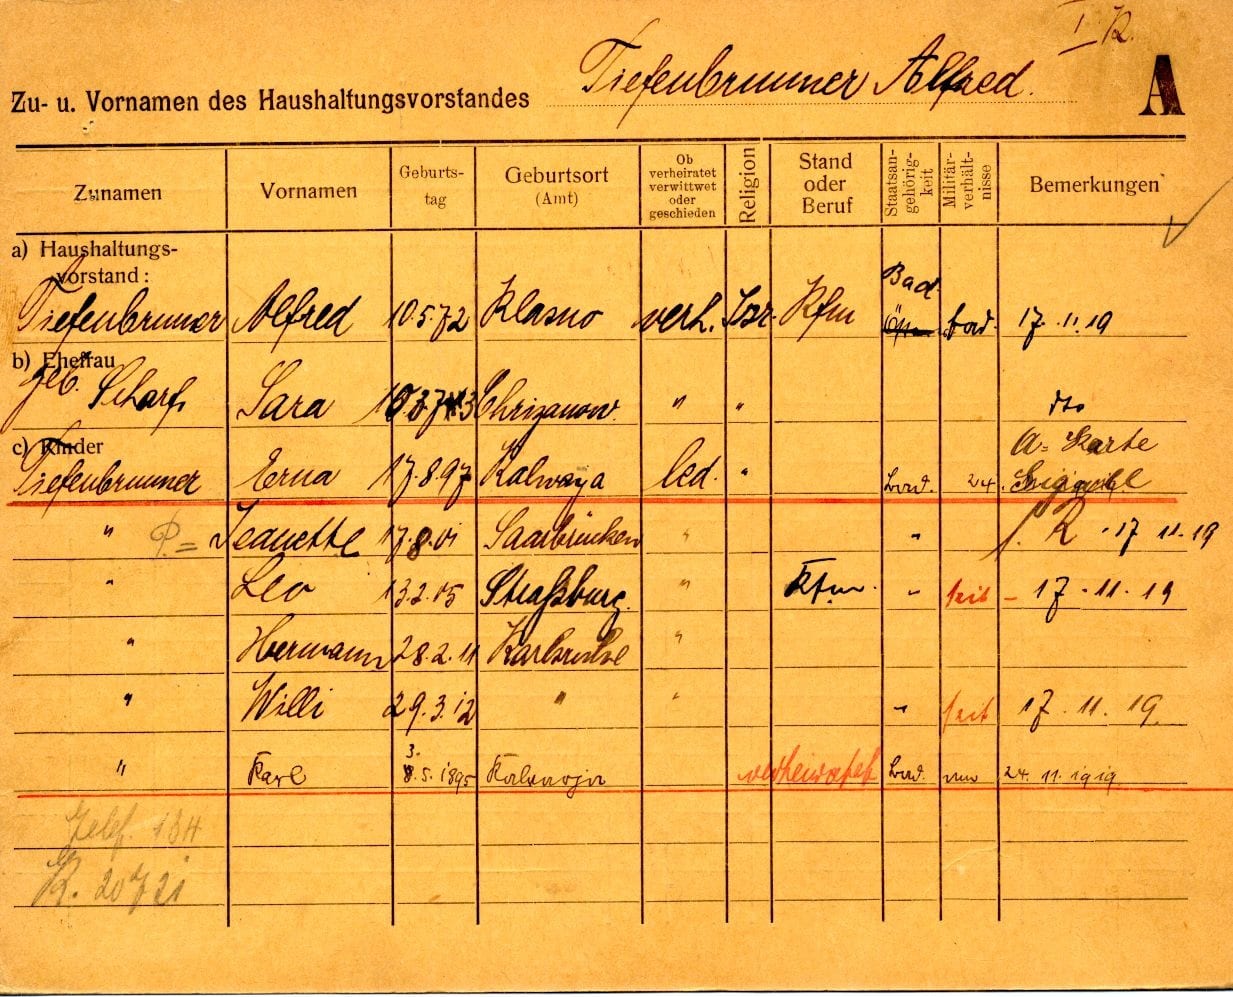 I R.
Zu- u. Vornamen des Haushaltungsvorstandes Tiefenbrunner Alfred.
A
Zunamen Vornamen Geburts-tag Geburtsort (Amt) Ob verheiratet verwittwet oder geschieden Religion Stand oder Beruf Staatsan-gehörig-keit Militär-verhält-nisse Bemerkungen
a) Haushaltungs-
vorstand:
Bad.
Tiefenbrunner Alfred 10.5.72 Klasno verh. Isr. Kfm Öst. 17.11.19
b) Ehefrau
geb. Scharf Sara Chrzanow " " dto
c) Kinder
A= Karte
Tiefenbrunner Erna 17.8.97 Kalwarya led. " bad. 24.
" P.= Jeanette 17.8.01 Saarbrücken " " R 17 11.19
" Leo 13.2.05 Straßburg. " Kfm. " seit - 17.11.19
" Hermann 28.2.11 Karlsruhe "
" Willi 29.3.12 " " " seit 17.11.19.
3.
" Karl 8.5.1895 Kalwarja verheiratet bad. nun 24.11.1919.
Telef. 184
K. 20721